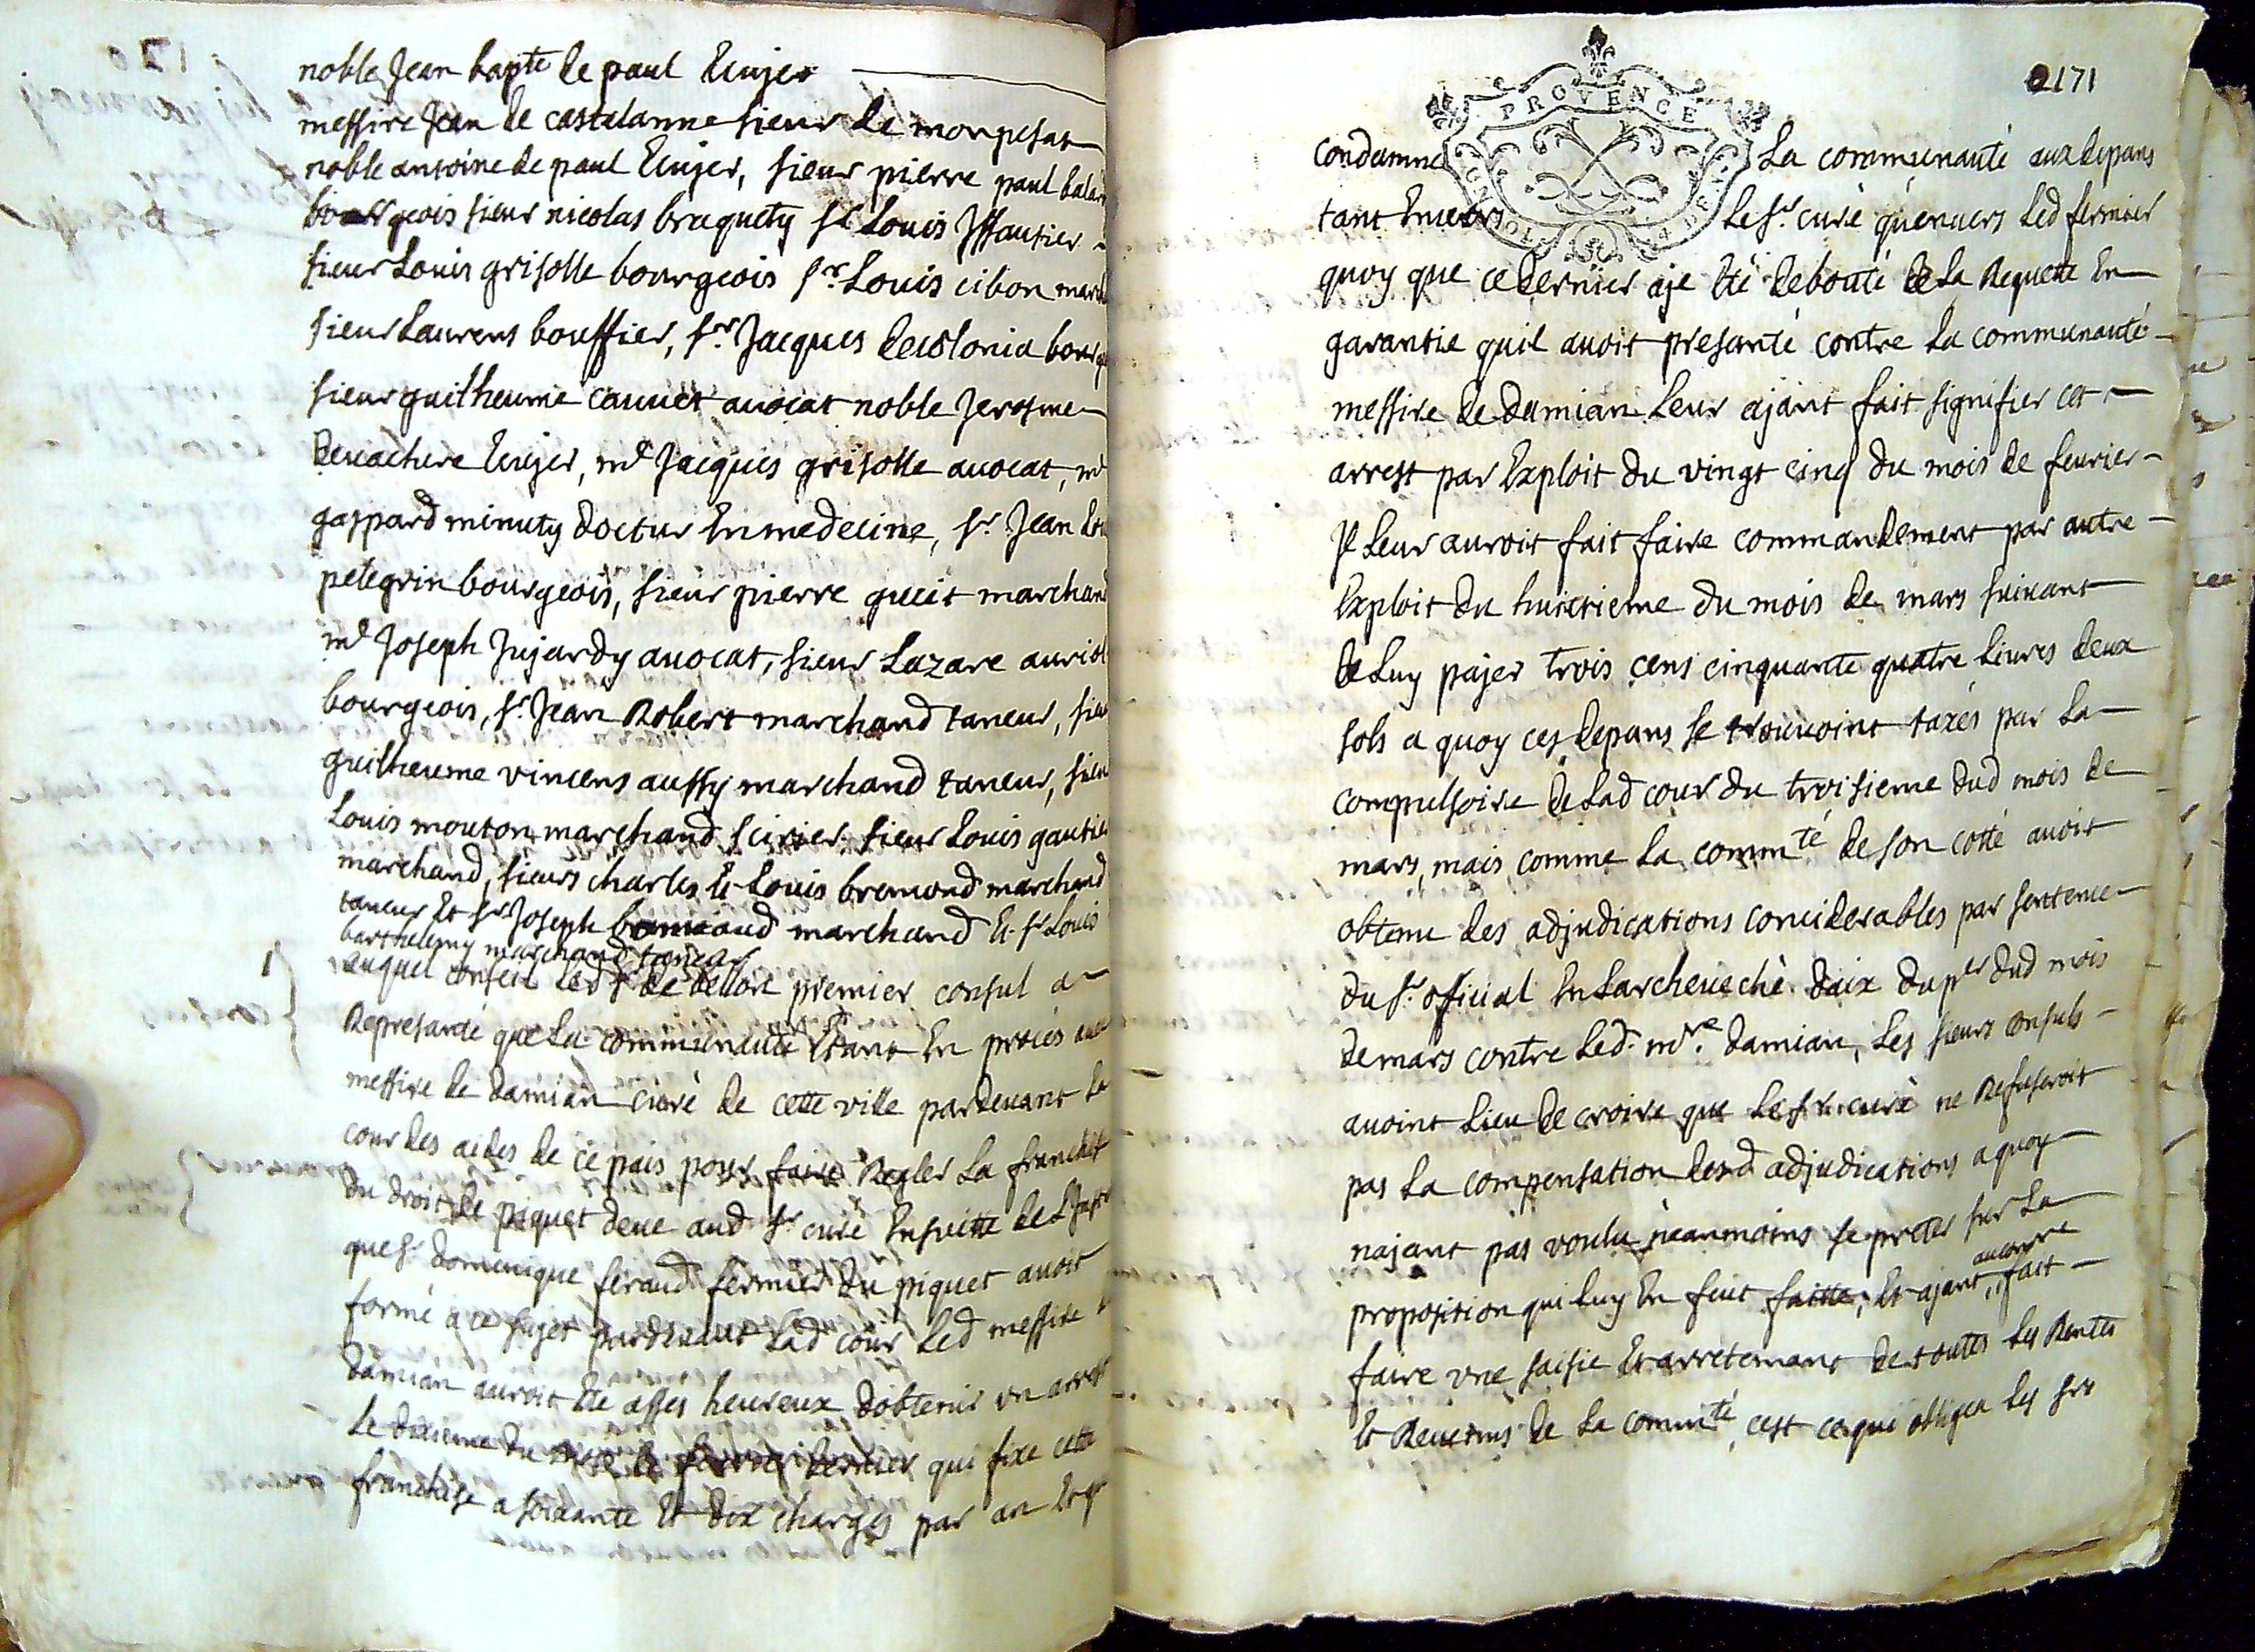 noble Jean bapte de paul Ecujer
messire Jean de castelanne sieur de monpesat
noble antoine de paul Ecujer, sieur pierre paul
bourgeois sieur nicolas braquety sr Louis Iffautier
sieur Louis grisolle bourgeois sr. Louis cibon
sieur Laurens bouffier, sr. Jacques decolonia
sieur guilheume cauvet auocat noble Jerosme
deuachere Ecujer, me Jacques grisolle auocat, me
gaspard minuty docteur En medecine, sr Jean
pelegrin bourgeois, sieur pierre gueit marchand
me Joseph Jujardy auocat, sieur Lazare auriol
bourgeois, sr. Jean Robert marchand taneur, sieur
guilheume vincens aussy marchand taneur, sieur
Louis mouton marchand scirier. sieur Louis gautier
marchand, sieurs charles Et Louis bremond marchand
taneur Et sr Joseph marchand Et sr Louis
barthelemy marchand taneur
auquel conseil led sr de bellon premier consul a
Represanté que La communauté Etant En procés auec
messire de damian curé de cette ville pardeuant La
cour des aides de ce païs pour faire Regler La franchise
du droit de piquet deue aud sr curé Ensuitte de
que sr domenique feraud fermier du piquet auoit
formé a ce sujet pardeuant Lad cour Led messire de
damian auroit Eté asses heureux dobtenir vn arrest
Le dixieme du mois de feurier dernier qui fixe cette
franchise a soixante Et dix charges par an Et qui
2171
PROVENCE
condamne La communauté aux depans
tant Enuers Le sr. curé quenuers Led fermier
quoy que ce dernier aje Eté debouté de La Requette En
garantie quil auoit presanté contre La communauté
messire de damian Leur ajant fait signifier cet
arrest par Exploit du vingt cinq du mois de feurier
Il Leur auroit fait faire commandement par autre
Exploit du huictieme du mois de mars suiuant
de Luy pajer trois cens cinquante quatre Liures deux
sols a quoy ces depans se trouuoint taxés par La
compulsoire de Lad cour du troisieme dud mois de
mars, mais comme La commté de son cotté auoit
obtenu des adjudications conciderables par sentence
du sr. oficial En Larcheueché daix du per dud mois
de mars contre Led. mre. damian, Les sieurs consuls
auoint Lieu de croire que Le sr curé ne Refuseroit
pas La compensation desd adjudications a quoy
najant pas voulu neanmoins se preter sur La
proposition qui Luy En feut faitte, Et ajant aucontre fait
faire vne saisie Et arretemant de toutes Les Rentes
Et Reuenus de La commté, cest ce qui obligea Les srs